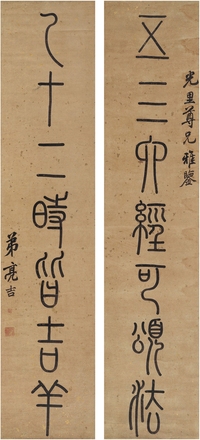 光里尊兄雅鑒
五三六經可頌法
十二時皆吉羊
弟亮吉